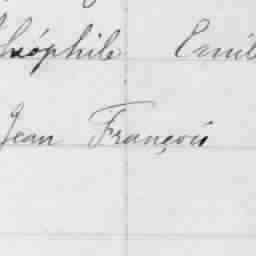 Théophile Emil
Jean François